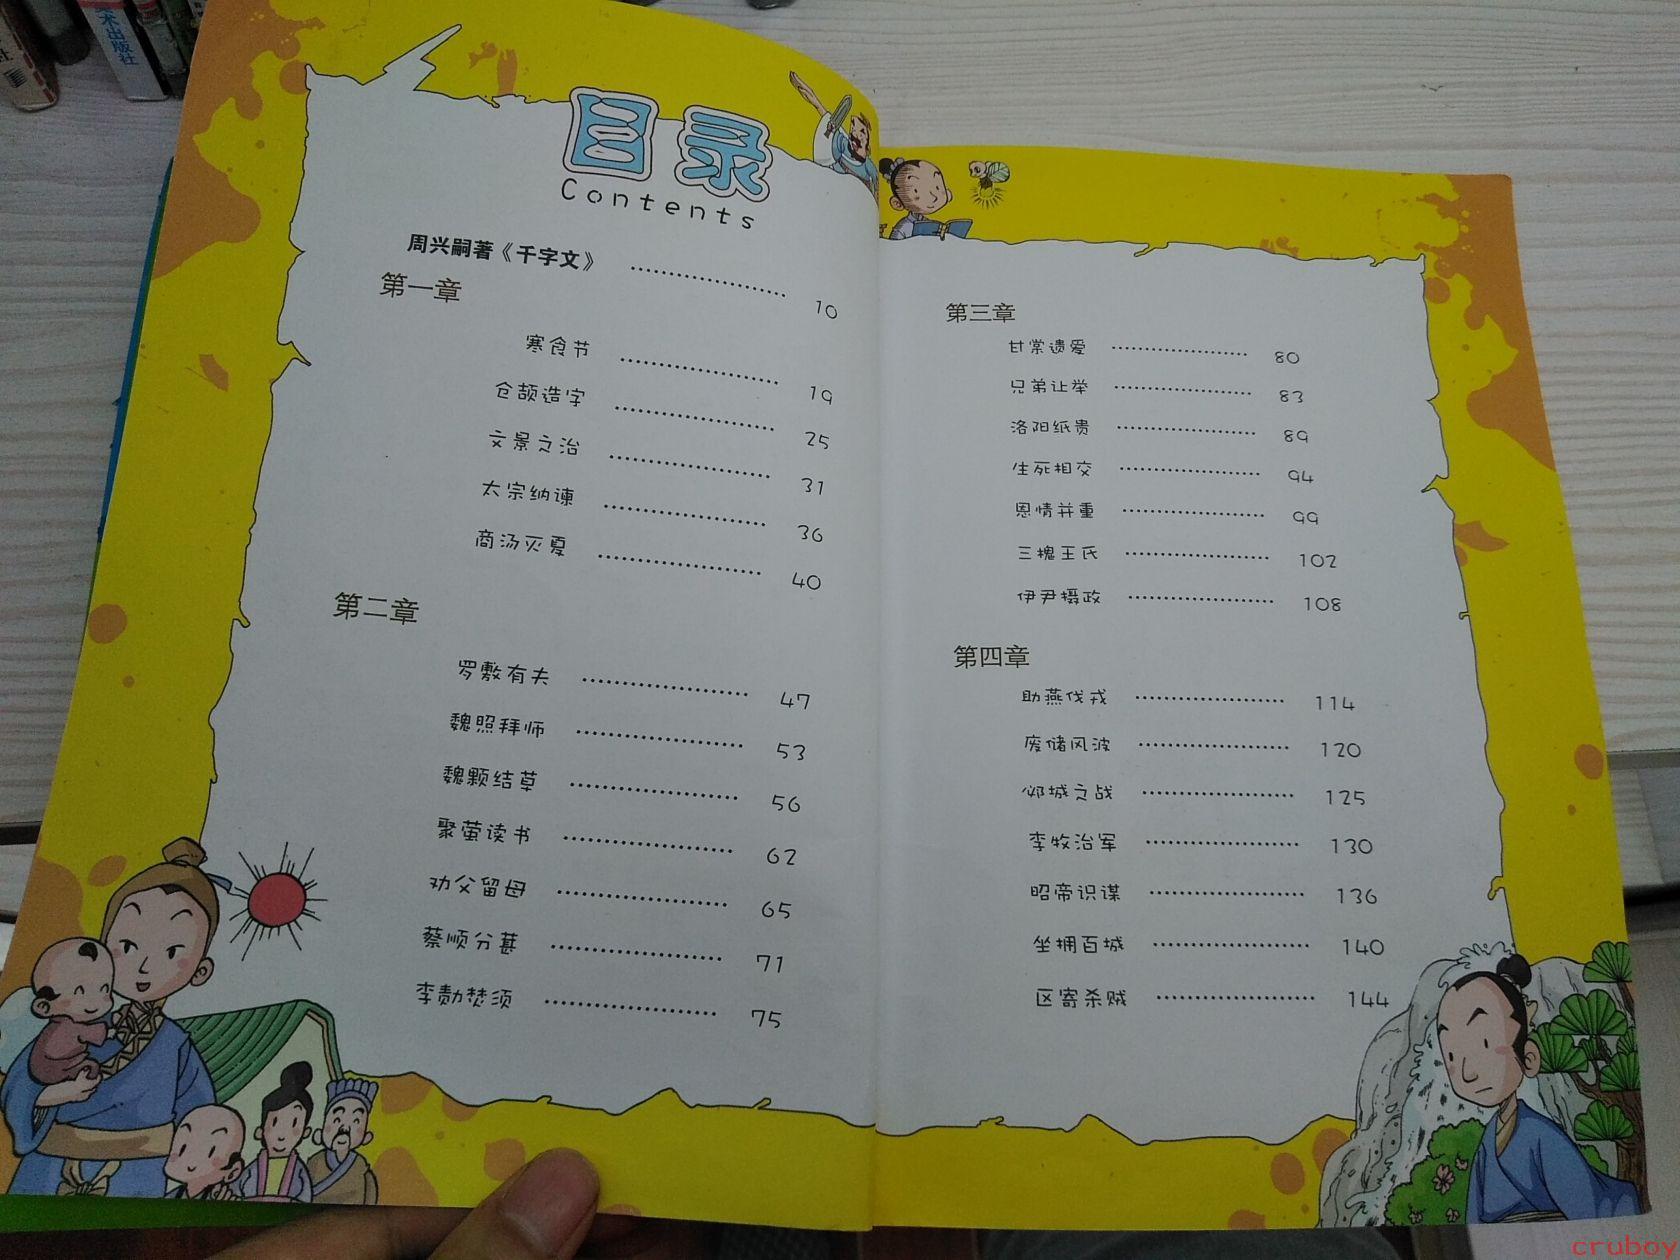 术出版社
社
目录
Contents
周兴嗣著《千字文》 …………………… 10
第一章
寒食节 …………………… 19
仓颉造字 …………………… 25
文景之治 …………………… 31
太宗纳谏 …………………… 36
商汤灭夏 …………………… 40
第二章
罗敷有夫 …………………… 47
魏照拜师 …………………… 53
魏颗结草 …………………… 56
聚萤读书 …………………… 62
劝父留母 …………………… 65
蔡顺分葚 …………………… 71
李勣焚须 …………………… 75
第三章
甘棠遗爱 …………………… 80
兄弟让举 …………………… 83
洛阳纸贵 …………………… 89
生死相交 …………………… 94
恩情并重 …………………… 99
三槐王氏 …………………… 102
伊尹摄政 …………………… 108
第四章
助燕伐戎 …………………… 114
废储风波 …………………… 120
邺城之战 …………………… 125
李牧治军 …………………… 130
昭帝识谋 …………………… 136
坐拥百城 …………………… 140
区寄杀贼 …………………… 144
cruboy